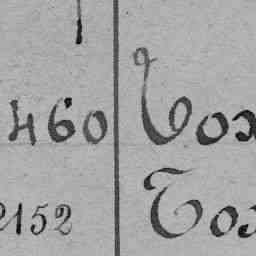 460 Vox
2152 Tox